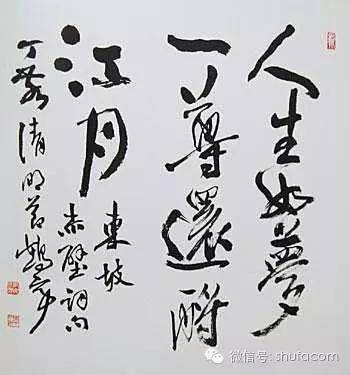 人生如夢
一尊還酹
江月
東坡
赤壁詞句
丁亥清明鶴年
微信号: shufacom